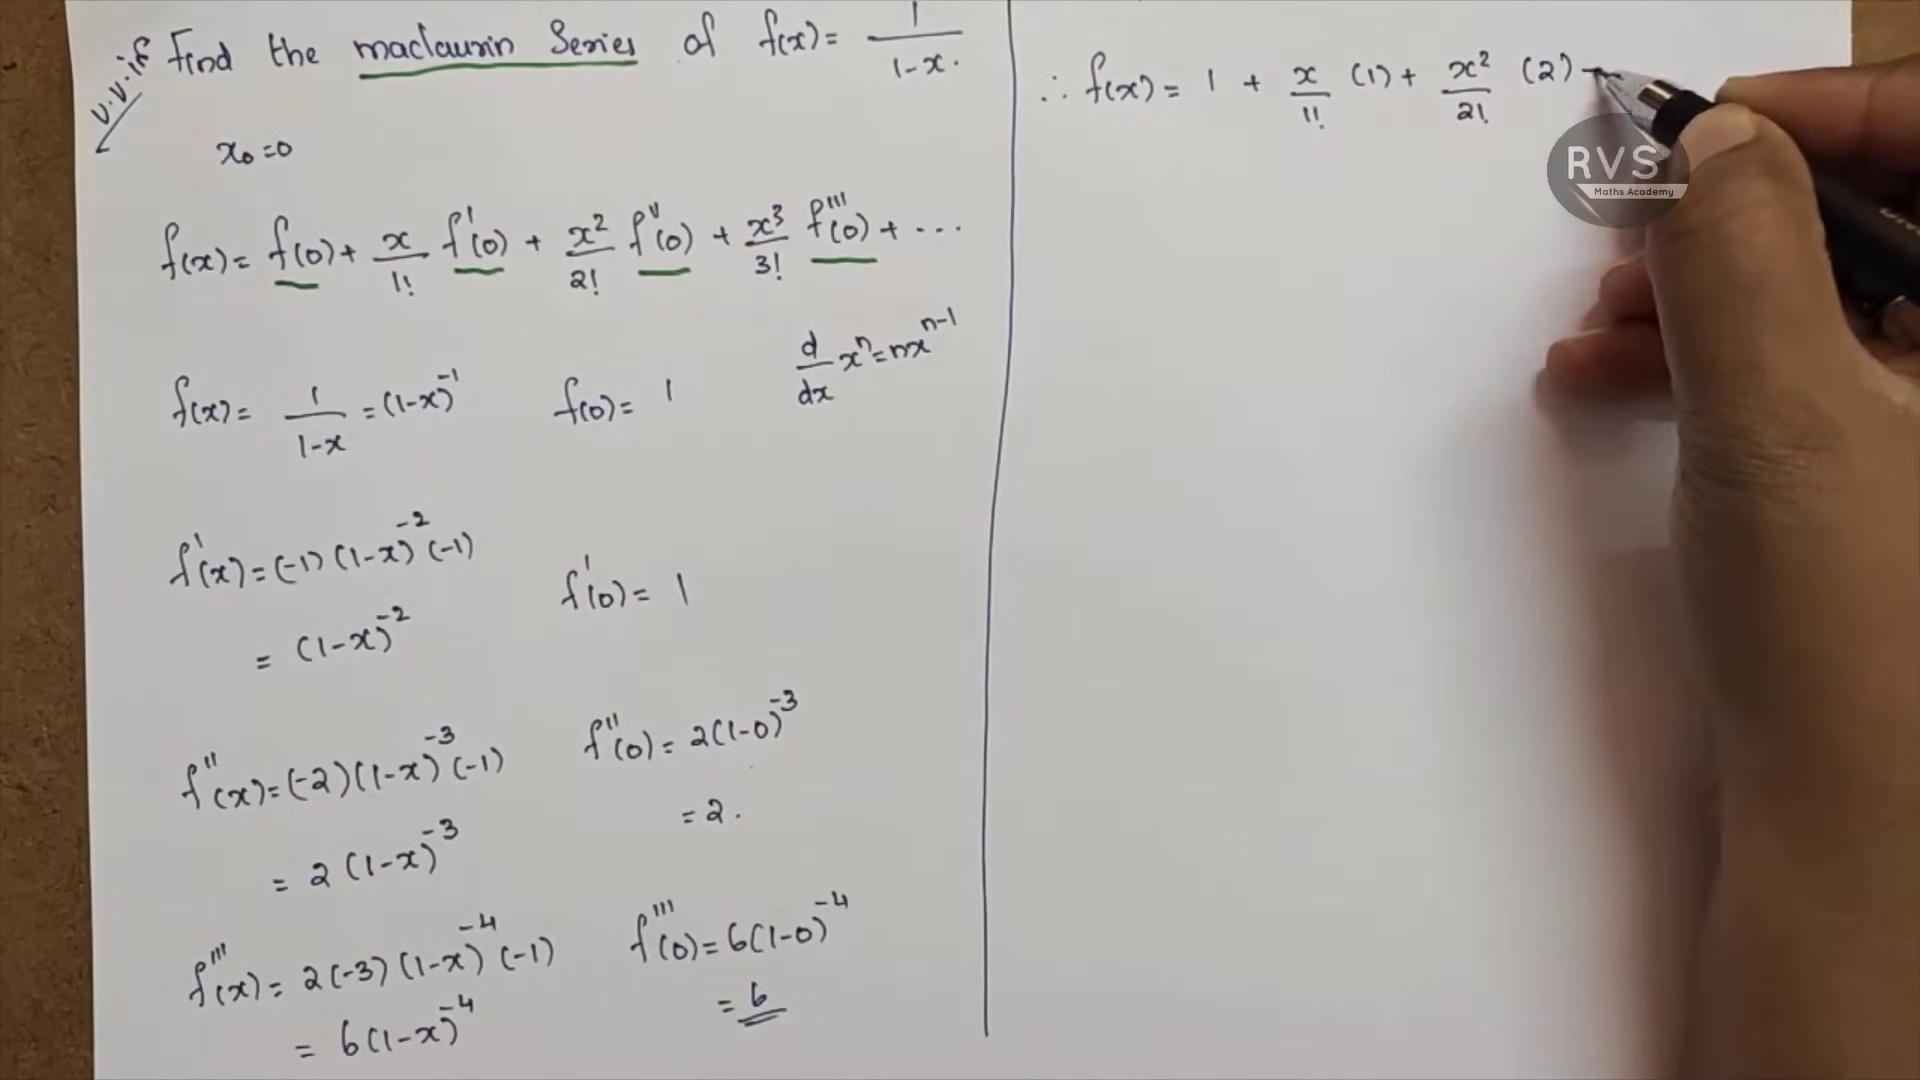 v.v.if Find the maclaurin Series of f(x) = 1/(1-x).
x₀=0
f(x) = f(0) + x/1! f'(0) + x²/2! f''(0) + x³/3! f'''(0) + ...
d/dx xⁿ = nxⁿ⁻¹
f(x) = 1/(1-x) = (1-x)⁻¹ f(0) = 1
f'(x) = (-1)(1-x)⁻²(-1)
= (1-x)⁻² f'(0) = 1
f''(x) = (-2)(1-x)⁻³(-1) f''(0) = 2(1-0)⁻³
= 2(1-x)⁻³ = 2.
f'''(x) = 2(-3)(1-x)⁻⁴(-1) f'''(0) = 6(1-0)⁻⁴
= 6(1-x)⁻⁴ = 6
∴ f(x) = 1 + x/1! (1) + x²/2! (2) +
RVS
Maths Academy